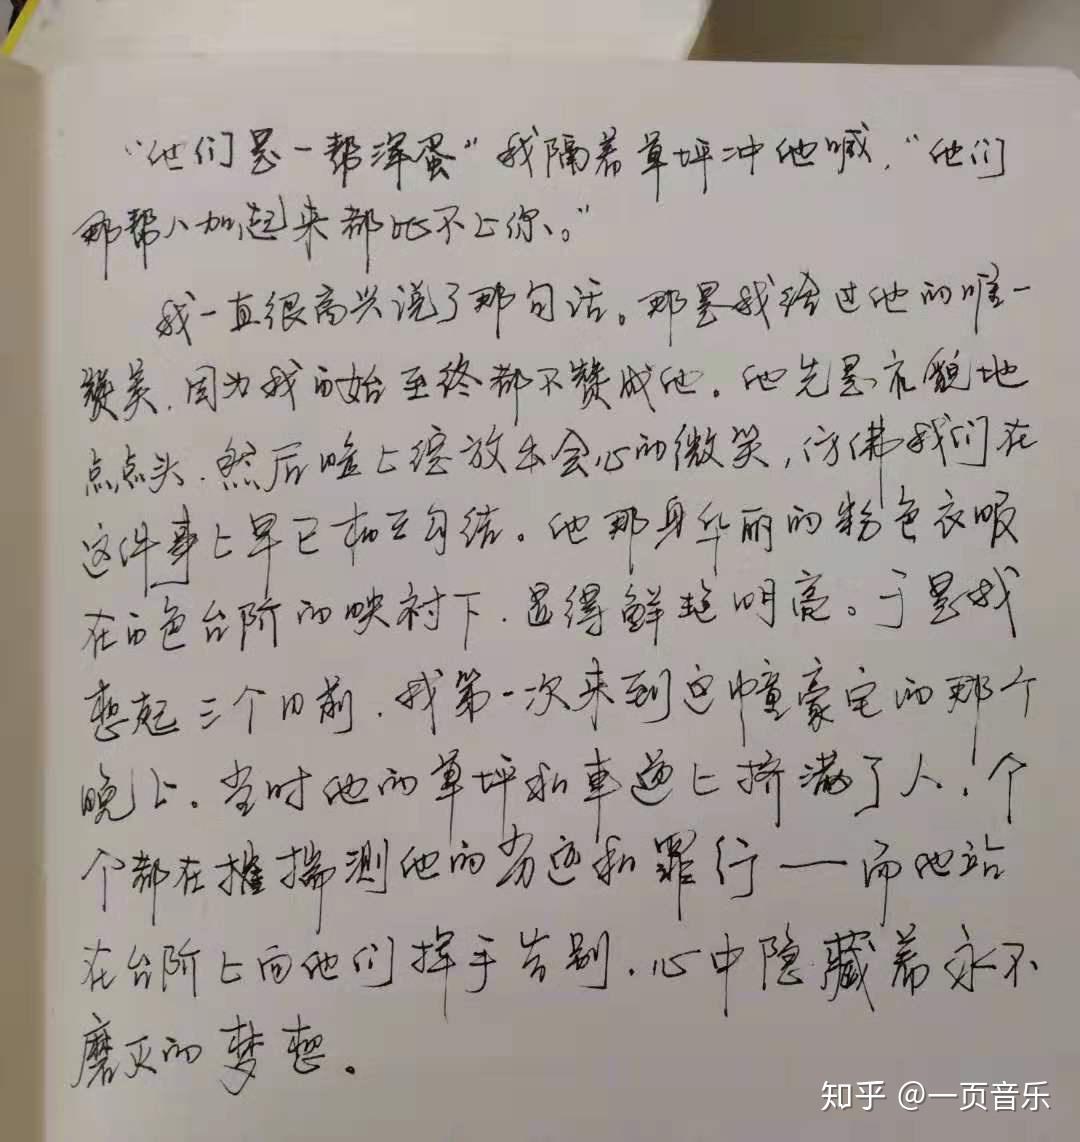 “他们是一帮浑蛋”我隔着草坪冲他喊，“他们
那帮人加起来都比不上你。”
我一直很高兴说了那句话。那是我给过他的唯一
赞美，因为我自始至终都不赞成他。他先是礼貌地
点点头，然后脸上绽放出会心的微笑，仿佛我们在
这件事上早已相互勾结。他那身华丽的粉色衣服
在白色台阶的映衬下，显得鲜艳明亮。于是我
想起三个月前，我第一次来到这幢豪宅的那个
晚上。当时他的草坪和车道上挤满了人，个
个都在揣测他的劣迹和罪行——而他站
在台阶上向他们挥手告别，心中隐藏着永不
磨灭的梦想。
知乎 @一页音乐